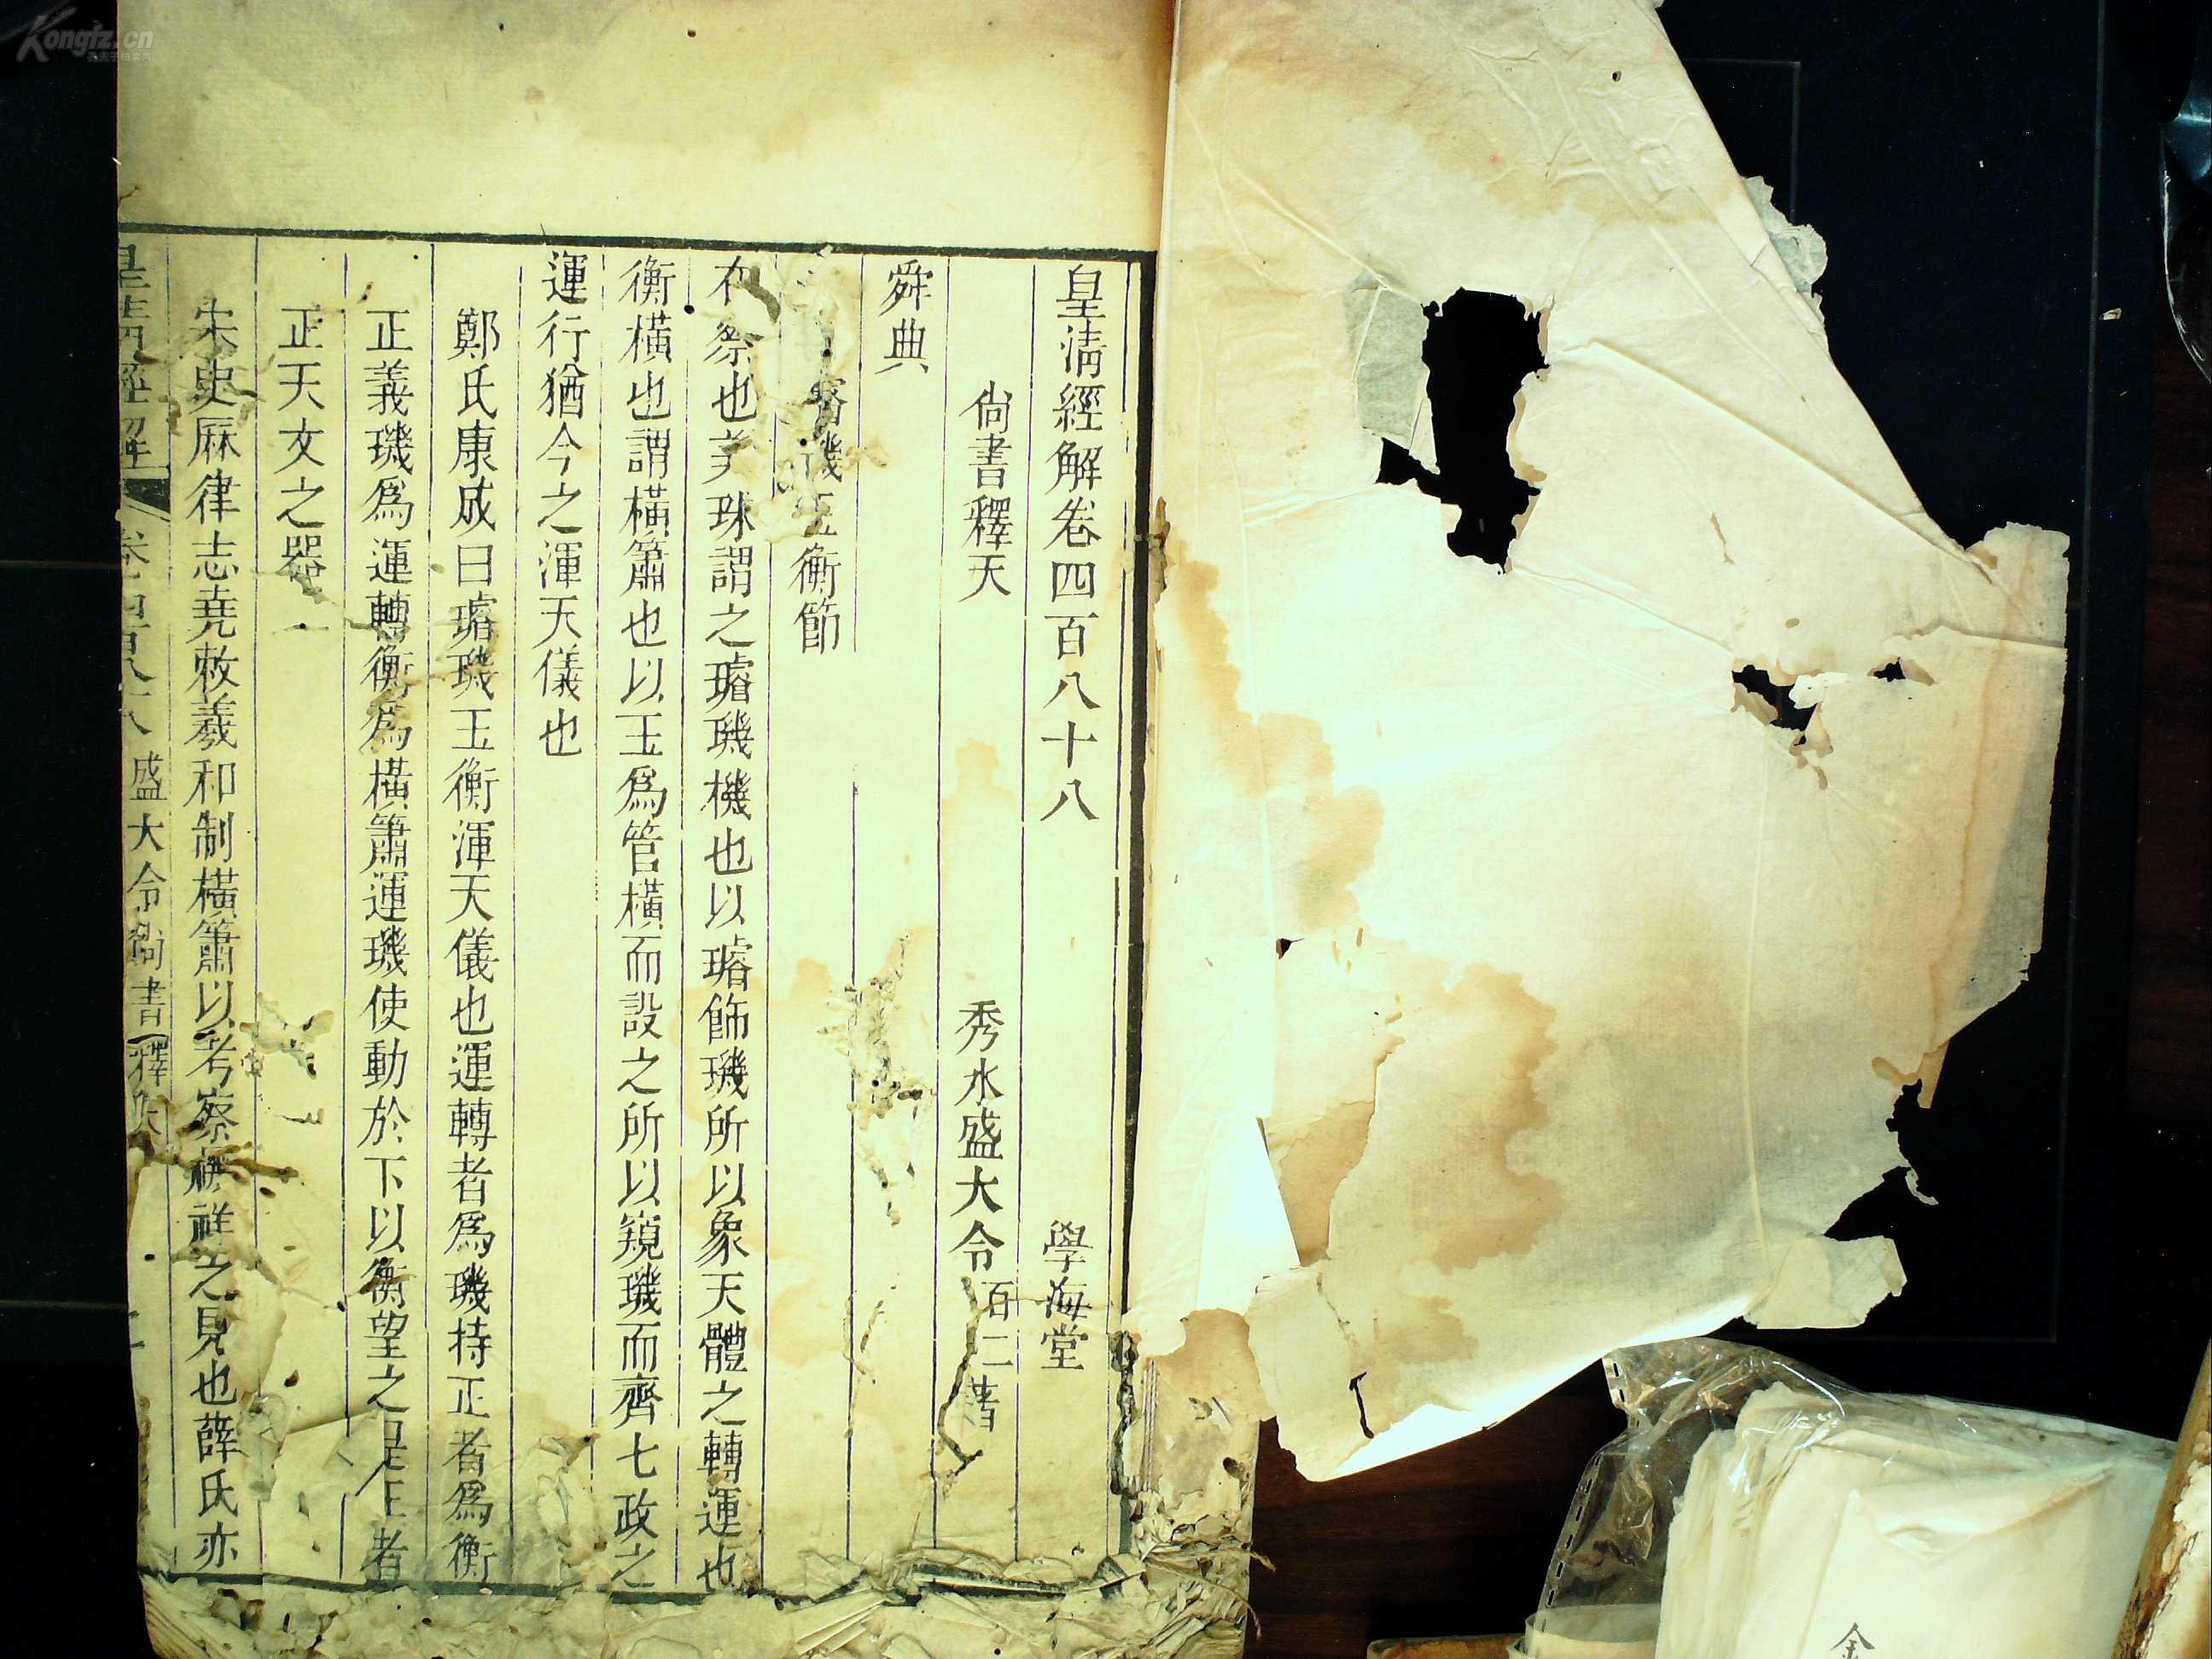 皇清經解卷四百八十八 學海堂
尙書釋天 秀水盛大令百二著
舜典
璣玉衡節
在察也美珠謂之璿璣機也以璿飾璣所以象天體之轉運也
衡橫也謂橫簫也以玉爲管橫而設之所以窺璣而齊七政之
運行猶今之渾天儀也
鄭氏康成曰璿璣玉衡渾天儀也運轉者爲璣持正者爲衡
正義璣爲運轉衡爲橫簫運璣使動於下以衡望之是王者
正天文之器
宋史厤律志堯敕羲和制橫簫以考察璣祥之見也薛氏亦
皇清經解 卷四百八十八 盛大令尙書釋天 一
金
Kongfz.cn